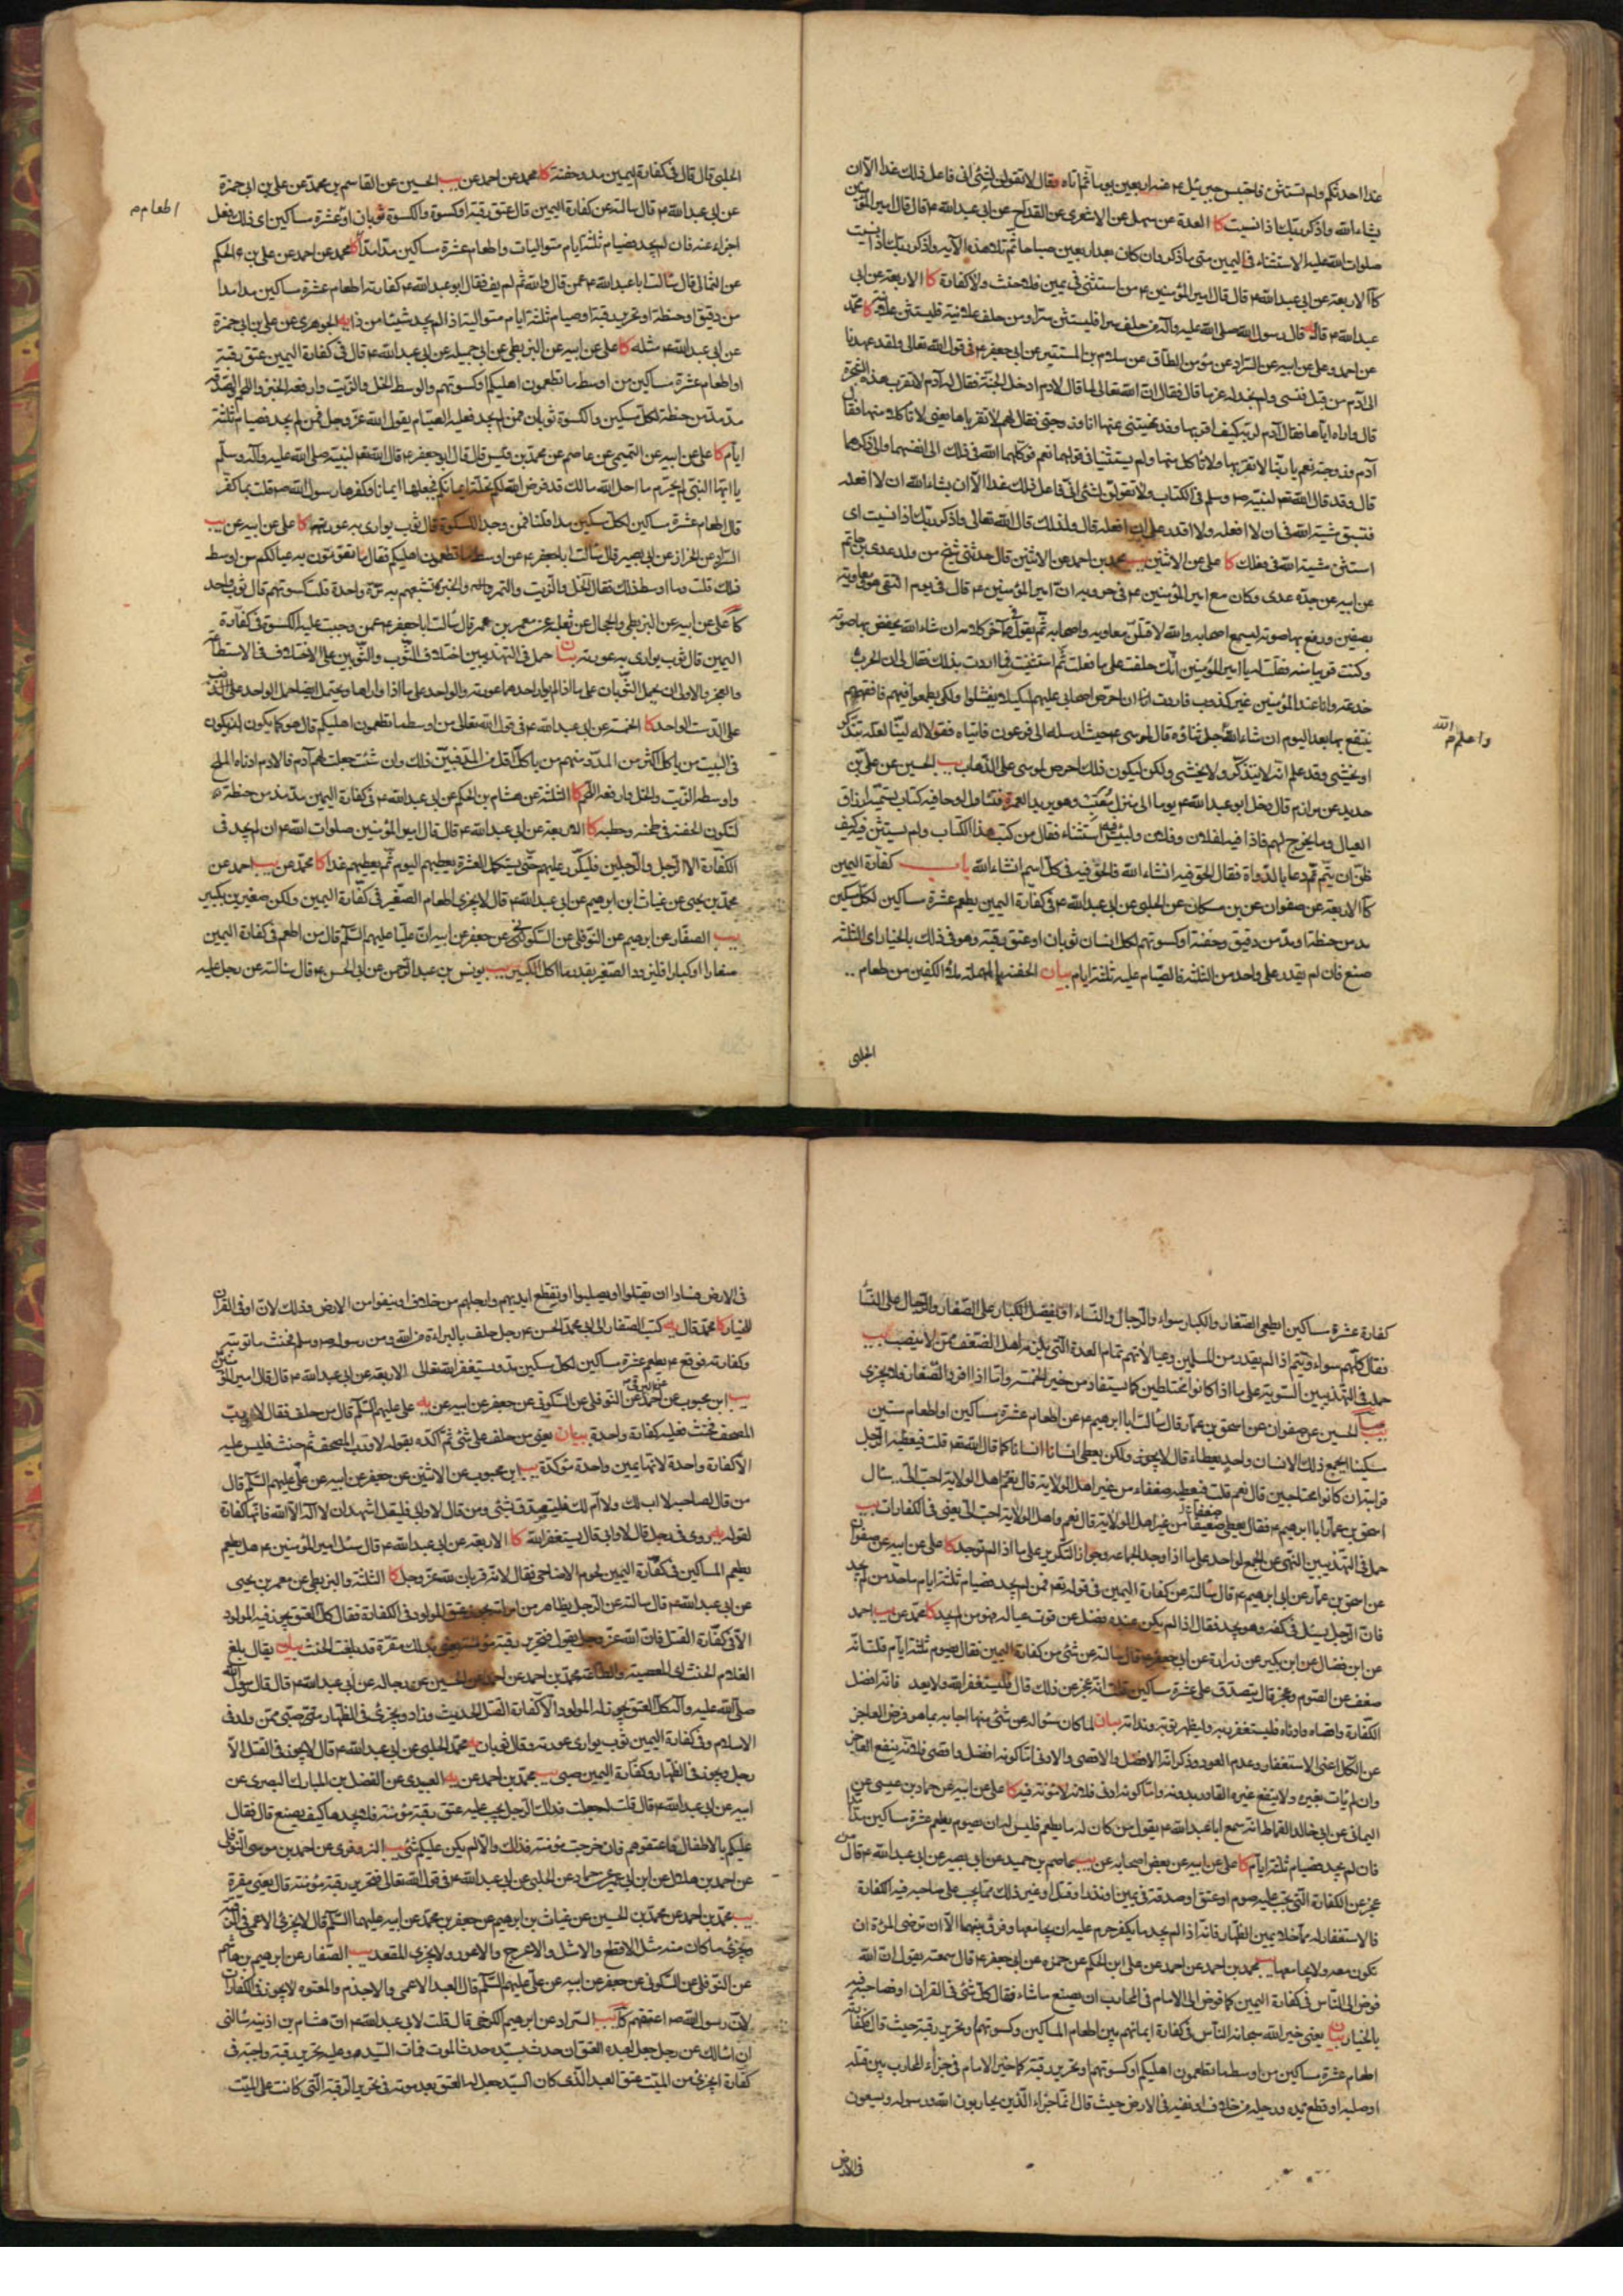 غدا احدثكم ولم يستثن فاحتبس جبرئيل ع عنه اربعين يوما ثم اتاه وقال لا تقولن لشئ انى فاعل ذلك غدا الا ان
يشاء الله واذكر ربك اذا نسيت كا العدة عن سهل عن الاشعرى عن القداح عن ابى عبدالله ع قال قال امير المؤمنين
صلوات الله عليه الاستثناء فى اليمين متى ما ذكر وان كان بعد اربعين صباحا ثم تلا هذه الآية واذكر ربك اذا نسيت
كا الاربعة عن ابى عبدالله ع قال قال امير المؤمنين ع من استثنى فى يمين فلا حنث ولا كفارة كا الاربعة عن ابى
عبدالله ع قال قال رسول الله صلى الله عليه وآله من حلف سرا فليستثن سرا ومن حلف علانية فليستثن علانية كا محمد
عن احمد وعلى عن ابيه عن السراد عن مؤمن الطاق عن سلام بن المستنير عن ابى جعفر ع فى قول الله تعالى ولقد عهدنا
الى آدم من قبل فنسى ولم نجد له عزما قال فقال ان الله تعالى لما قال لادم ادخل الجنة فقال له يا آدم لا تقرب هذه الشجرة
قال واراه اياها فقال آدم لربه كيف اقربها وقد نهيتنى عنها انا وزوجتى فقال لهما لا تقرباها يعنى لا تاكلا منها فقال
آدم وزوجته نعم يا ربنا لا نقربها ولا ناكل منها ولم يستثنيا فى قولهما نعم فوكلهما الله فى ذلك الى انفسهما والى ذكرهما
قال وقد قال الله تعه لنبيه ص وسلم فى الكتاب ولا تقولن لشئ انى فاعل ذلك غدا الا ان يشاء الله ان لا افعله
فتسبق مشية الله فى ان لا افعله ولا اقدر على ان افعله قال ولذلك قال الله تعالى واذكر ربك اذا نسيت اى
استثن مشية الله فى فعلك كا على عن الاثنين يب محمد بن احمد عن الاثنين قال حدثنى شيخ من ولد عدى بن حاتم
عن ابيه عن جده عدى وكان مع امير المؤمنين ع فى حروبه ان امير المؤمنين ع قال فى يوم التقى هو ومعاوية
بصفين ورفع بها صوته ليسمع اصحابه والله لاقتلن معاويه واصحابه ثم يقول فى آخر كلامه ان شاء الله يخفض بها صوته
وكنت قريبا منه فقلت له يا امير المؤمنين انك حلفت على ما فعلت ثم استثنيت فما اردت بذلك فقال لى ان الحرب
خدعة وانا عند المؤمنين غير كذوب فاردت ان احرض اصحابى عليهم لكيلا يفشلوا ولكى يطمعوا فيهم فافقههم
ينتفع بها بعد اليوم ان شاء الله جل ثناؤه قال لموسى ع حيث ارسله الى فرعون فاتياه فقولا له لينا لعله يتذكر
او يخشى وقد علم انه لا يتذكر ولا يخشى ولكن ليكون ذلك احرص لموسى على الذهاب يب الحسين عن على بن
حديد عن مرازم قال دخل ابو عبدالله ع يوما الى منزل معتب وهو يريد العمرة فتناول لوحا فيه كتاب تسمية ارزاق
العيال وما يخرج لهم فاذا فيه لفلان وفلان وليس فيه استثناء فقال من كتب هذا الكتاب ولم يستثن فيه كيف
ظن ان يتم ثم دعا بالدواة فقال الحق فيه انشاء الله فالحق فيه فى كل اسم انشاء الله باب كفارة اليمين
كا الاربعة عن صفوان عن ابن مسكان عن الحلبى عن ابى عبدالله ع فى كفارة اليمين يطعم عشرة مساكين لكل مسكين
مد من حنطة او مد من دقيق وحفنة او كسوتهم لكل انسان ثوبان او عتق رقبة وهو فى ذلك بالخيار اى الثلثة
صنع فان لم يقدر على واحد من الثلثة فالصيام عليه ثلثة ايام بيان الحفنة بالمهملة ملأ الكفين من طعام
واعلم الله م
الحلبى
الحلبى قال قال فى كفارة اليمين مد وحفنة كا محمد عن احمد عن يب الحسين عن القاسم بن محمد عن على بن ابى حمزة
عن ابى عبدالله ع قال سالته عن كفارة اليمين قال عتق رقبة او كسوة والكسوة ثوبان او عشرة مساكين اى ذلك فعل
اطعام م
اجزاء عنه فان لم يجد فصيام ثلثة ايام متواليات واطعام عشرة مساكين مدا مدا كا محمد عن احمد عن على بن الحكم
عن الثمالى قال سالت ابا عبدالله ع عمن قال والله ثم لم يف فقال ابو عبدالله ع كفارته اطعام عشرة مساكين مدا مدا
من دقيق او حنطة او تحرير رقبة او صيام ثلثة ايام متوالية اذا لم يجد شيئا من ذا يه الجوهرى عن على بن ابى حمزة
عن ابى عبدالله ع مثله كا على عن ابيه عن البزنطى عن ابى جميلة عن ابى عبدالله ع قال فى كفارة اليمين عتق رقبة
او اطعام عشرة مساكين من اوسط ما تطعمون اهليكم او كسوتهم والوسط الخل والزيت وارفعه الخبز واللحم والصدقة
مد مد من حنطة لكل مسكين والكسوة ثوبان فمن لم يجد فعليه الصيام يقول الله عز وجل فمن لم يجد فصيام ثلثة
ايام كا على عن ابيه عن التميمى عن عاصم عن محمد بن قيس قال قال ابو جعفر ع قال الله تعه لنبيه صلى الله عليه وآله وسلم
يا ايها النبى لم تحرم ما احل الله لك قد فرض الله لكم تحلة ايمانكم فجعلها ايمانا وكفرها رسول الله ص قلت بما كفر
قال اطعام عشرة مساكين لكل مسكين مد قلنا فمن وجد الكسوة قال ثوب يوارى به عورته كا على عن ابيه عن يب
السراد عن الخزاز عن ابى بصير قال سالت ابا جعفر ع عن اوسط ما تطعمون اهليكم فقال ما تقوتون به عيالكم من اوسط
ذلك قلت وما اوسط ذلك فقال الخل والزيت والتمر والخبز تشبعهم به مرة واحدة قلت كسوتهم قال ثوب واحد
كا على عن ابيه عن البزنطى والحجال عن ثعلبة عن معمر بن عمر قال سالت ابا جعفر ع عمن وجبت عليه الكسوة فى كفارة
اليمين قال ثوب يوارى به عورته بيان حمل فى التهذيبين اختلاف الثوب والثوبين على الاختلاف فى الاستطاعة
والعجز والاولى ان يحمل الثوبان على ما اذا لم يوار احدهما عورته والواحد على ما اذا واراها ويحتمل ايضا حمل الواحد على
على الدست الواحد كا الخمسة عن ابى عبدالله ع فى قول الله تعالى من اوسط ما تطعمون اهليكم قال هو كما يكون انه يكون
فى البيت من ياكل اكثر من المد ومنهم من ياكل اقل من المد فبين ذلك وان شئت جعلت لهم آدم فالادم ادناه الملح
واوسطه الزيت والخل وارفعه اللحم كا الثلثة عن هشام بن الحكم عن ابى عبدالله ع فى كفارة اليمين مد مد من حنطة
لتكون الحفنة فى طحنه وحطبه كا الاربعة عن ابى عبدالله ع قال قال امير المؤمنين صلوات الله ع ان لم يجد فى
الكفارة الا الرجل والرجلين فليكرر عليهم حتى يستكمل العشرة يعطيهم اليوم ثم يعطيهم غدا كا محمد عن يب احمد عن
محمد بن يحيى عن غياث بن ابرهيم عن ابى عبدالله ع قال لا يجزى اطعام الصغير فى كفارة اليمين ولكن صغيرين بكبير
يب الصفار عن ابرهيم عن النوفلى عن السكونى عن جعفر عن ابيه ان عليا عليهم السلم قال من اطعم فى كفارة اليمين
صغارا او كبارا فليزود الصغير بقدر ما اكل الكبير يب يونس بن عبد الرحمن عن ابى الحسن ع قال سالته عن رجل عليه
كفارة عشرة مساكين ايطعم الصغار والكبار سواء والرجال والنساء او يفضل الكبار على الصغار والرجال على النساء
فقال كلهم سواء ويتمم اذا لم يقدر من المسلمين وعيالاتهم تمام العدة التى تلزمه اهل الضعف ممن لا ينصب يب
حمله فى التهذيبين التسوية على ما اذا كانوا مختلطين كما يستفاد من خبر الخمسة واما اذا افرد الصغار فلا يجزى
يب الحسين عن صفوان عن اسحق بن عمار قال سالت ابا ابرهيم ع عن اطعام عشرة مساكين او اطعام ستين
مسكينا ايجمع ذلك لانسان واحد يعطاه قال لا يجوز ولكن يعطى انسانا انسانا كما قال الله تعه قلت فيعطيه الرجل
قرابته ان كانوا محتاجين قال نعم قلت فيعطيه ضعفاء من غير اهل الولاية قال نعم اهل الولاية احب الى سال
اسحق بن عمار ابا ابرهيم ع فقال يعطى ضعيفا من غير اهل الولاية قال نعم واهل الولاية احب الى يعنى فى الكفارات يب
حمل فى التهذيبين النهى عن الجمع لواحد على ما اذا وجد الجماعة وجواز التكرير على ما اذا لم توجد كا على عن ابيه عن صفوان
عن اسحق بن عمار عن ابى ابرهيم ع قال سالته عن كفارة اليمين فى قوله تعه فمن لم يجد فصيام ثلثة ايام ما حد من لم يجد
فان الرجل يسئل فى كفه وهو يجد فقال اذا لم يكن عنده فضل عن قوت عياله فهو ممن لم يجد كا محمد عن يب احمد
عن ابن فضال عن ابن بكير عن زرارة عن ابى جعفر ع قال سالته عن شئ من كفارة اليمين فقال يصوم ثلثة ايام قلت انه
ضعف عن الصوم وعجز قال يتصدق على عشرة مساكين قلت انه عجز عن ذلك قال فليستغفر الله ولا يعد فانه افضل
الكفارة واقصاه وادناه فليستغفر ربه وليظهر توبة وندامة بيان لما كان سؤاله عن شئ منها اجابه بما هو فرض العاجز
عن الكل اعنى الاستغفار وعدم العود وذكر انه الافضل والاقصى والادنى اما كونه افضل واقصى فلانه ينفع العاجز
وان لم يات بغيره ولا ينفع غيره القادر بدونه واما كونه ادنى فلانه لا مؤنة فيه كا على عن ابيه عن حماد بن عيسى عن
اليمانى عن ابى خالد القماط انه سمع ابا عبدالله ع يقول من كان له ما يطعم فليس له ان يصوم يطعم عشرة مساكين مدا مدا
فان لم يجد فصيام ثلثة ايام كا على عن ابيه عن بعض اصحابه عن يب عاصم بن حميد عن ابى بصير عن ابى عبدالله ع قال من
عجز عن الكفارة التى تجب عليه صوم او عتق او صدقة فى يمين او نذر او قتل او غير ذلك مما يجب على صاحبه فيه الكفارة
فالاستغفار له ما خلا يمين الظهار فانه اذا لم يجد ما يكفر حرم عليه ان يجامعها وفرق بينهما الا ان ترضى المرءة ان
تكون معه ولا يجامعها يب محمد بن احمد عن احمد عن على بن الحكم عن حمزه عن ابى جعفر ع قال سمعته يقول ان الله
فوض الى الناس فى كفارة اليمين كما فوض الى الامام فى المحارب ان يصنع ما شاء فقال كل شئ فى القران او فصاحبه فيه
بالخيار بيان يعنى خير الله سبحانه الناس فى كفارة ايمانهم بين اطعام المساكين وكسوتهم وتحرير رقبة حيث قال فكفارته
اطعام عشرة مساكين من اوسط ما تطعمون اهليكم او كسوتهم او تحرير رقبة كما خير الامام فى جزاء المحارب بين قتله
او صلبه او قطع يده ورجله من خلاف او نفيه فى الارض حيث قال انما جزاء الذين يحاربون الله ورسوله ويسعون
فى الارض
فى الارض فسادا ان يقتلوا او يصلبوا او تقطع ايديهم وارجلهم من خلاف او ينفوا من الارض وذلك لان او فى القران
للخيار كا محمد قال يه كتب الصفار الى ابى محمد الحسن ع رجل حلف بالبراءة من الله ومن رسوله ص وسلم فحنث ما توبته
وكفارته فوقع ع يطعم عشرة مساكين لكل مسكين مد ويستغفر الله تعالى الاربعة عن ابى عبدالله ع قال قال امير المؤمنين
يب ابن محبوب عن احمد عن النوفلى عن السكونى عن جعفر عن ابيه عن يه على عليهم السلم قال من حلف فقال لا ورب
المصحف فحنث فعليه كفارة واحدة بيان يعنى من حلف على شئ ثم اكده بقوله لا ورب المصحف ثم حنث فليس عليه
الا كفارة واحدة لانها يمين واحدة مؤكدة يب ابن محبوب عن الاثنين عن جعفر عن ابيه عن على عليهم السلم قال
من قال لصاحبه لا اب لك ولا ام لك فليتصدق بشئ ومن قال لا وابى فليقل اشهد ان لا اله الا الله فانها كفارة
لقوله يه روى فى رجل قال لا وابى قال يستغفر الله كا الاربعة عن ابى عبدالله ع قال سئل امير المؤمنين ع هل يطعم
يطعم المساكين فى كفارة اليمين لحوم الاضاحى فقال لا لانه قربان لله عز وجل كا الثلثة والبزنطى عن معمر بن يحيى
عن ابى عبدالله ع قال سالته عن الرجل يظاهر من امراته يجوز عتق المولود فى الكفارة فقال كل العتق يجوز فيه المولود
الا فى كفارة القتل فان الله عز وجل يقول فتحرير رقبة مؤمنة يعنى بذلك مقرة قد بلغت الحنث بيان يقال بلغ
الغلام الحنث اى المعصية والطاعة محمد بن احمد عن احمد عن الحسين عن رجاله عن ابى عبدالله ع قال قال رسول الله
صلى الله عليه وآله كل العتق يجوز له المولود الا كفارة القتل الحديث وزاد ويجزى فى الظهار صبى ممن ولد فى
الاسلام وفى كفارة اليمين ثوب يوارى عورته وقال ثوبان يه محمد الحلبى عن ابى عبدالله ع قال لا يجوز فى القتل الا
رجل ويجوز فى الظهار وكفارة اليمين صبى يب محمد بن احمد عن يه العبيدى عن الفضل بن المبارك البصرى عن
ابيه عن ابى عبدالله ع قال قلت له جعلت فداك الرجل يجب عليه عتق رقبة مؤمنة فلا يجدها كيف يصنع قال فقال
عليكم بالاطفال فاعتقوهم فان خرجت مؤمنة فذلك والا لم يكن عليكم شئ يب البزوفرى عن احمد بن موسى النوفلى
عن احمد بن هلال عن ابن ابى عمير عن حماد عن الحلبى عن ابى عبدالله ع فى قول الله تعالى فتحرير رقبة مؤمنة قال يعنى مقرة
يب محمد بن احمد عن محمد بن الحسين عن غياث بن ابرهيم عن جعفر بن محمد عن ابيه عليهما السلم قال لا يجزى الاعمى فى الرقبة
ويجزى ما كان منه مثل الاقطع والاشل والاعرج والاعور ولا يجزى المقعد يب الصفار عن ابرهيم بن هاشم
عن النوفلى عن السكونى عن جعفر عن ابيه عن على عليهم السلم قال العبد الاعمى والاجذم والمعتوه لا يجوز فى الكفارات
لان رسول الله ص اعتقهم كا يب السراد عن ابرهيم الكرخى قال قلت لابى عبدالله ع ان هشام بن اذينه سالنى
ان اسالك عن رجل جعل لعبده العتق ان حدث بسيده حدث الموت فمات السيد وعليه تحرير رقبة واجبة فى
كفارة ايجزى عن الميت عتق العبد الذى كان السيد جعل له العتق بعد موته فى تحرير الرقبة التى كانت على الميت